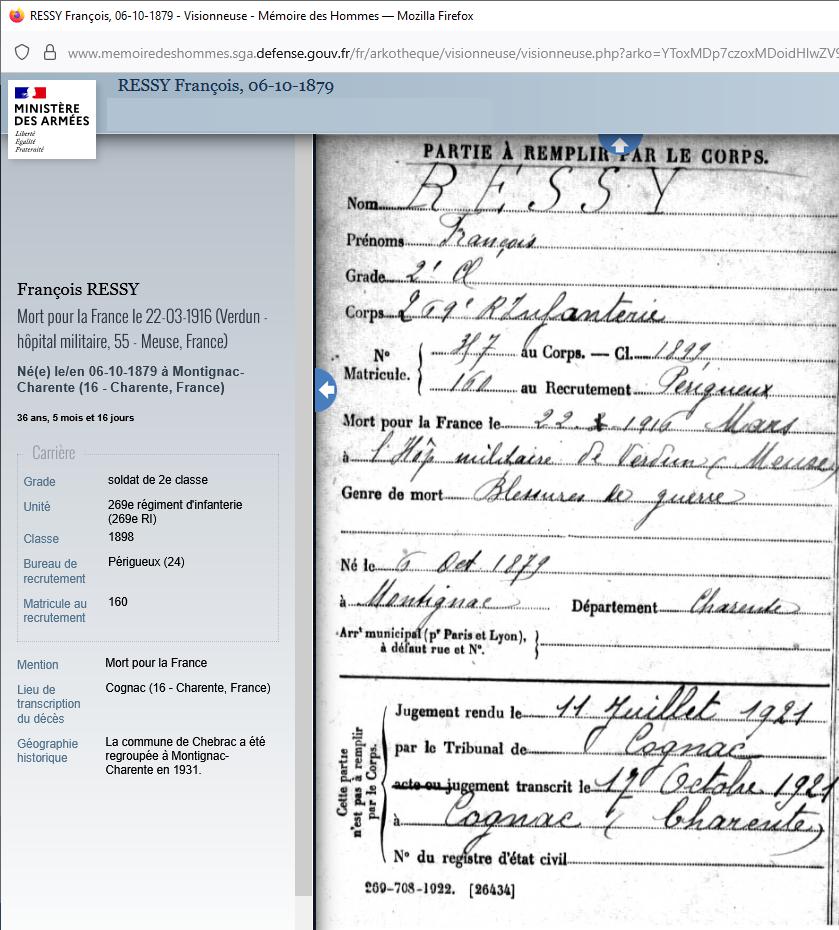 RESSY François, 06-10-1879 - Visionneuse - Mémoire des Hommes — Mozilla Firefox
www.memoiredeshommes.sga.defense.gouv.fr/fr/arkotheque/visionneuse/visionneuse.php?arko=YToxMDp7czoxMDoidHlwZV9
RESSY François, 06-10-1879
MINISTÈRE
DES ARMÉES
Liberté
Égalité
Fraternité
François RESSY
Mort pour la France le 22-03-1916 (Verdun -
hôpital militaire, 55 - Meuse, France)
Né(e) le/en 06-10-1879 à Montignac-
Charente (16 - Charente, France)
36 ans, 5 mois et 16 jours
Carrière
Grade soldat de 2e classe
Unité 269e régiment d'infanterie
(269e RI)
Classe 1898
Bureau de recrutement Périgueux (24)
Matricule au recrutement 160
Mention Mort pour la France
Lieu de transcription du décès Cognac (16 - Charente, France)
Géographie historique La commune de Chebrac a été
regroupée à Montignac-
Charente en 1931.
PARTIE À REMPLIR PAR LE CORPS.
Nom RESSY
Prénoms François
Grade 2e Cl
Corps 269e R Infanterie
N° Matricule. 317 au Corps. — Cl. 1899
160 au Recrutement Périgueux
Mort pour la France le 22 1916 Mars
à l'Hôp militaire de Verdun (Meuse)
Genre de mort Blessures de guerre
Né le 6 Oct 1879
à Montignac Département Charente
Arrt municipal (pr Paris et Lyon),
à défaut rue et N°.
Cette partie
n'est pas à remplir
par le Corps.
Jugement rendu le 11 Juillet 1921
par le Tribunal de Cognac
acte ou jugement transcrit le 17 Octobre 1921
à Cognac (Charente)
N° du registre d'état civil
269-708-1922. [26434]